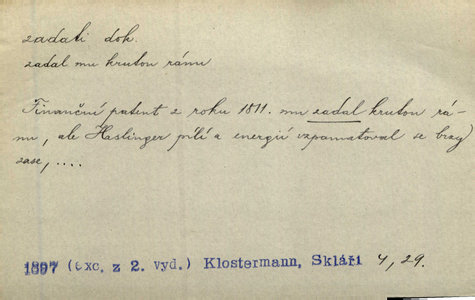 zadati dok.
zadal mu krutou ránu
Finanční patent z roku 1811. mu zadal krutou rá-
nu, ale Haslinger pílí a energií vzpamatoval se brzy
zase, ....
1897 (exc. z 2. vyd.) Klostermann, Skláři 4, 29.